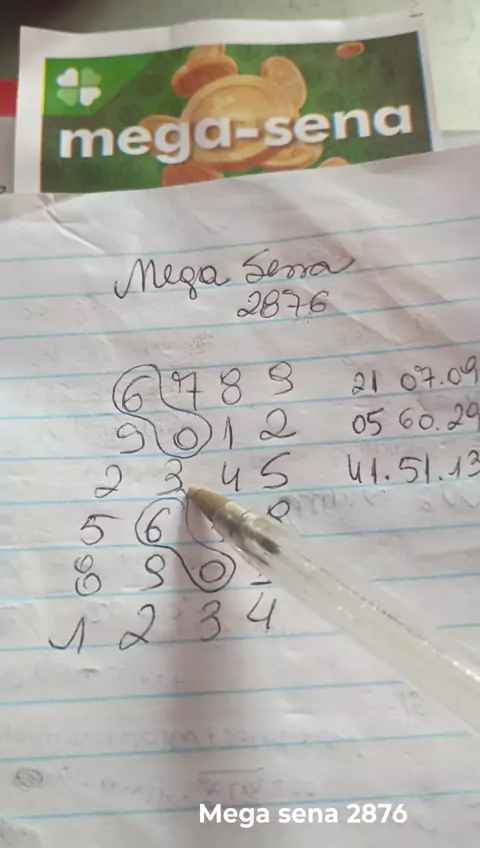 mega-sena
Mega Sena
2876
6 7 8 9 21 07.09
9 0 1 2 05 60.29
2 3 4 5 41.51.13
5 6 8
8 9 0
1 2 3 4
Mega sena 2876